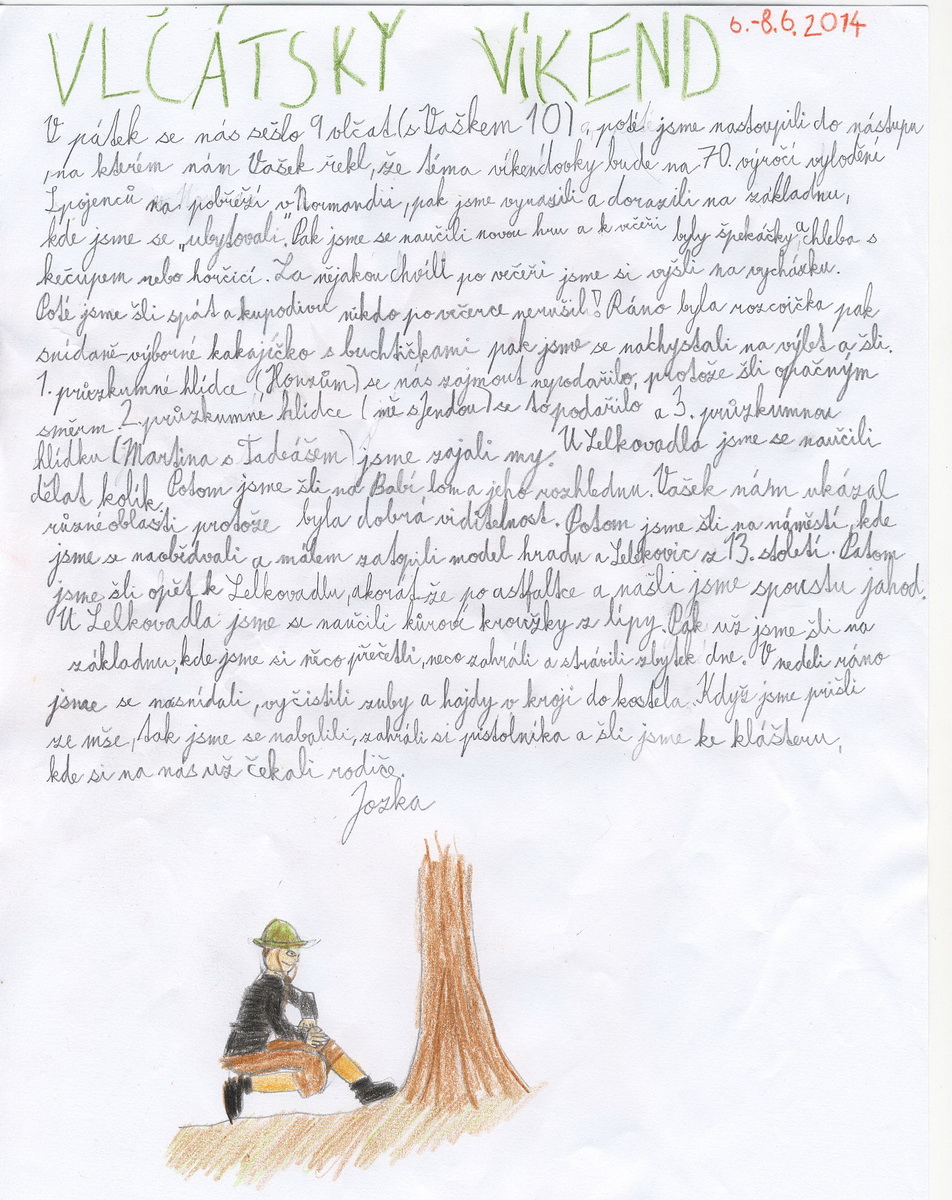 VLČÁTSKÝ VÍKEND 6.-8.6.2014
V pátek se nás sešlo 9 vlčat (s Vaškem 10) a poté jsme nastoupili do nástupu
, na kterém nám Vašek řekl, že téma víkendovky bude na 70. výročí vylodění
Spojenců na pobřeží v Normandii, pak jsme vyrazili a dorazili na základnu,
kde jsme se „ubytovali". Pak jsme se naučili novou hru a k večeři byly špekáčky a chleba s
kečupem nebo hořčicí. Za nějakou chvíli po večeři jsme si vyšli na vycházku.
Poté jsme šli spát a kupodivu nikdo po večerce nerušil! Ráno byla rozcvička pak
snídaně-výborné kakajíčko s buchtičkami pak jsme se nachystali na výlet a šli.
1. průzkumné hlídce (Honzům) se nás zajmout nepodařilo, protože šli opačným
směrm. 2. průzkumné hlídce (mě s Jendou) se to podařilo a 3. průzkumnou
hlídku (Martina s Tadeášem) jsme zajali my. U Lelkovadla jsme se naučili
dělat kolík. Potom jsme šli na Babí lom a jeho rozhlednu. Vašek nám ukázal
různé oblasti protože byla dobrá viditelnost. Potom jsme šli na náměstí, kde
jsme se naobědvali a málem zatopili model hradu u Lelekovic z 13. století. Potom
jsme šli opět k Lelkovadlu, akorát že po asfaltce a našli jsme spoustu jahod.
U Lelkovadla jsme se naučili kůrové kroužky z lípy. Pak už jsme šli na
základnu, kde jsme si něco přečetli, neco zahráli a strávili zbytek dne. V neděli ráno
jsme se nasnídali, vyčistili zuby a hajdy v kroji do kostela. Když jsme přišli
ze mše, tak jsme se nabalili, zahráli si pistolníka a šli jsme ke klášteru,
kde si na nás už čekali rodiče.
Jozka